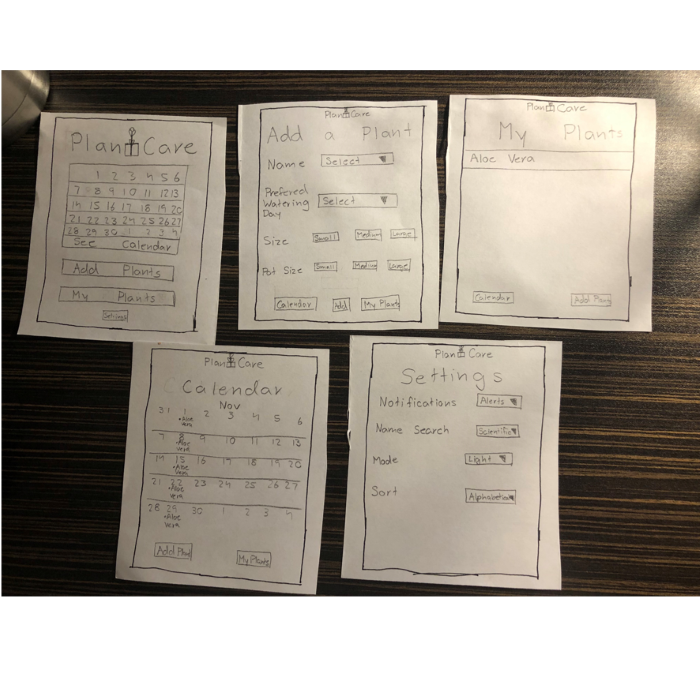 Plant Care
1 2 3 4 5 6
7 8 9 10 11 12 13
14 15 16 17 18 19 20
21 22 23 24 25 26 27
28 29 30 1 2 3 4
See Calendar
Add Plants
My Plants
Settings
Plant Care
Add a Plant
Name Select
Prefered
Watering Select
Day
Size Small Medium Large
Pot Size Small Medium Large
Calendar Add My Plants
Plant Care
My Plants
Aloe Vera
Calendar Add Plant
Plant Care
Calendar
Nov
31 1 2 3 4 5 6
•Aloe
vera
7 8 9 10 11 12 13
•Aloe
vera
14 15 16 17 18 19 20
•Aloe
vera
21 22 23 24 25 26 27
•Aloe
vera
28 29 30 1 2 3 4
•Aloe
vera
Add Plant My Plants
Plant Care
Settings
Notifications Alerts
Name Search Scientific
Mode Light
Sort Alphabetical